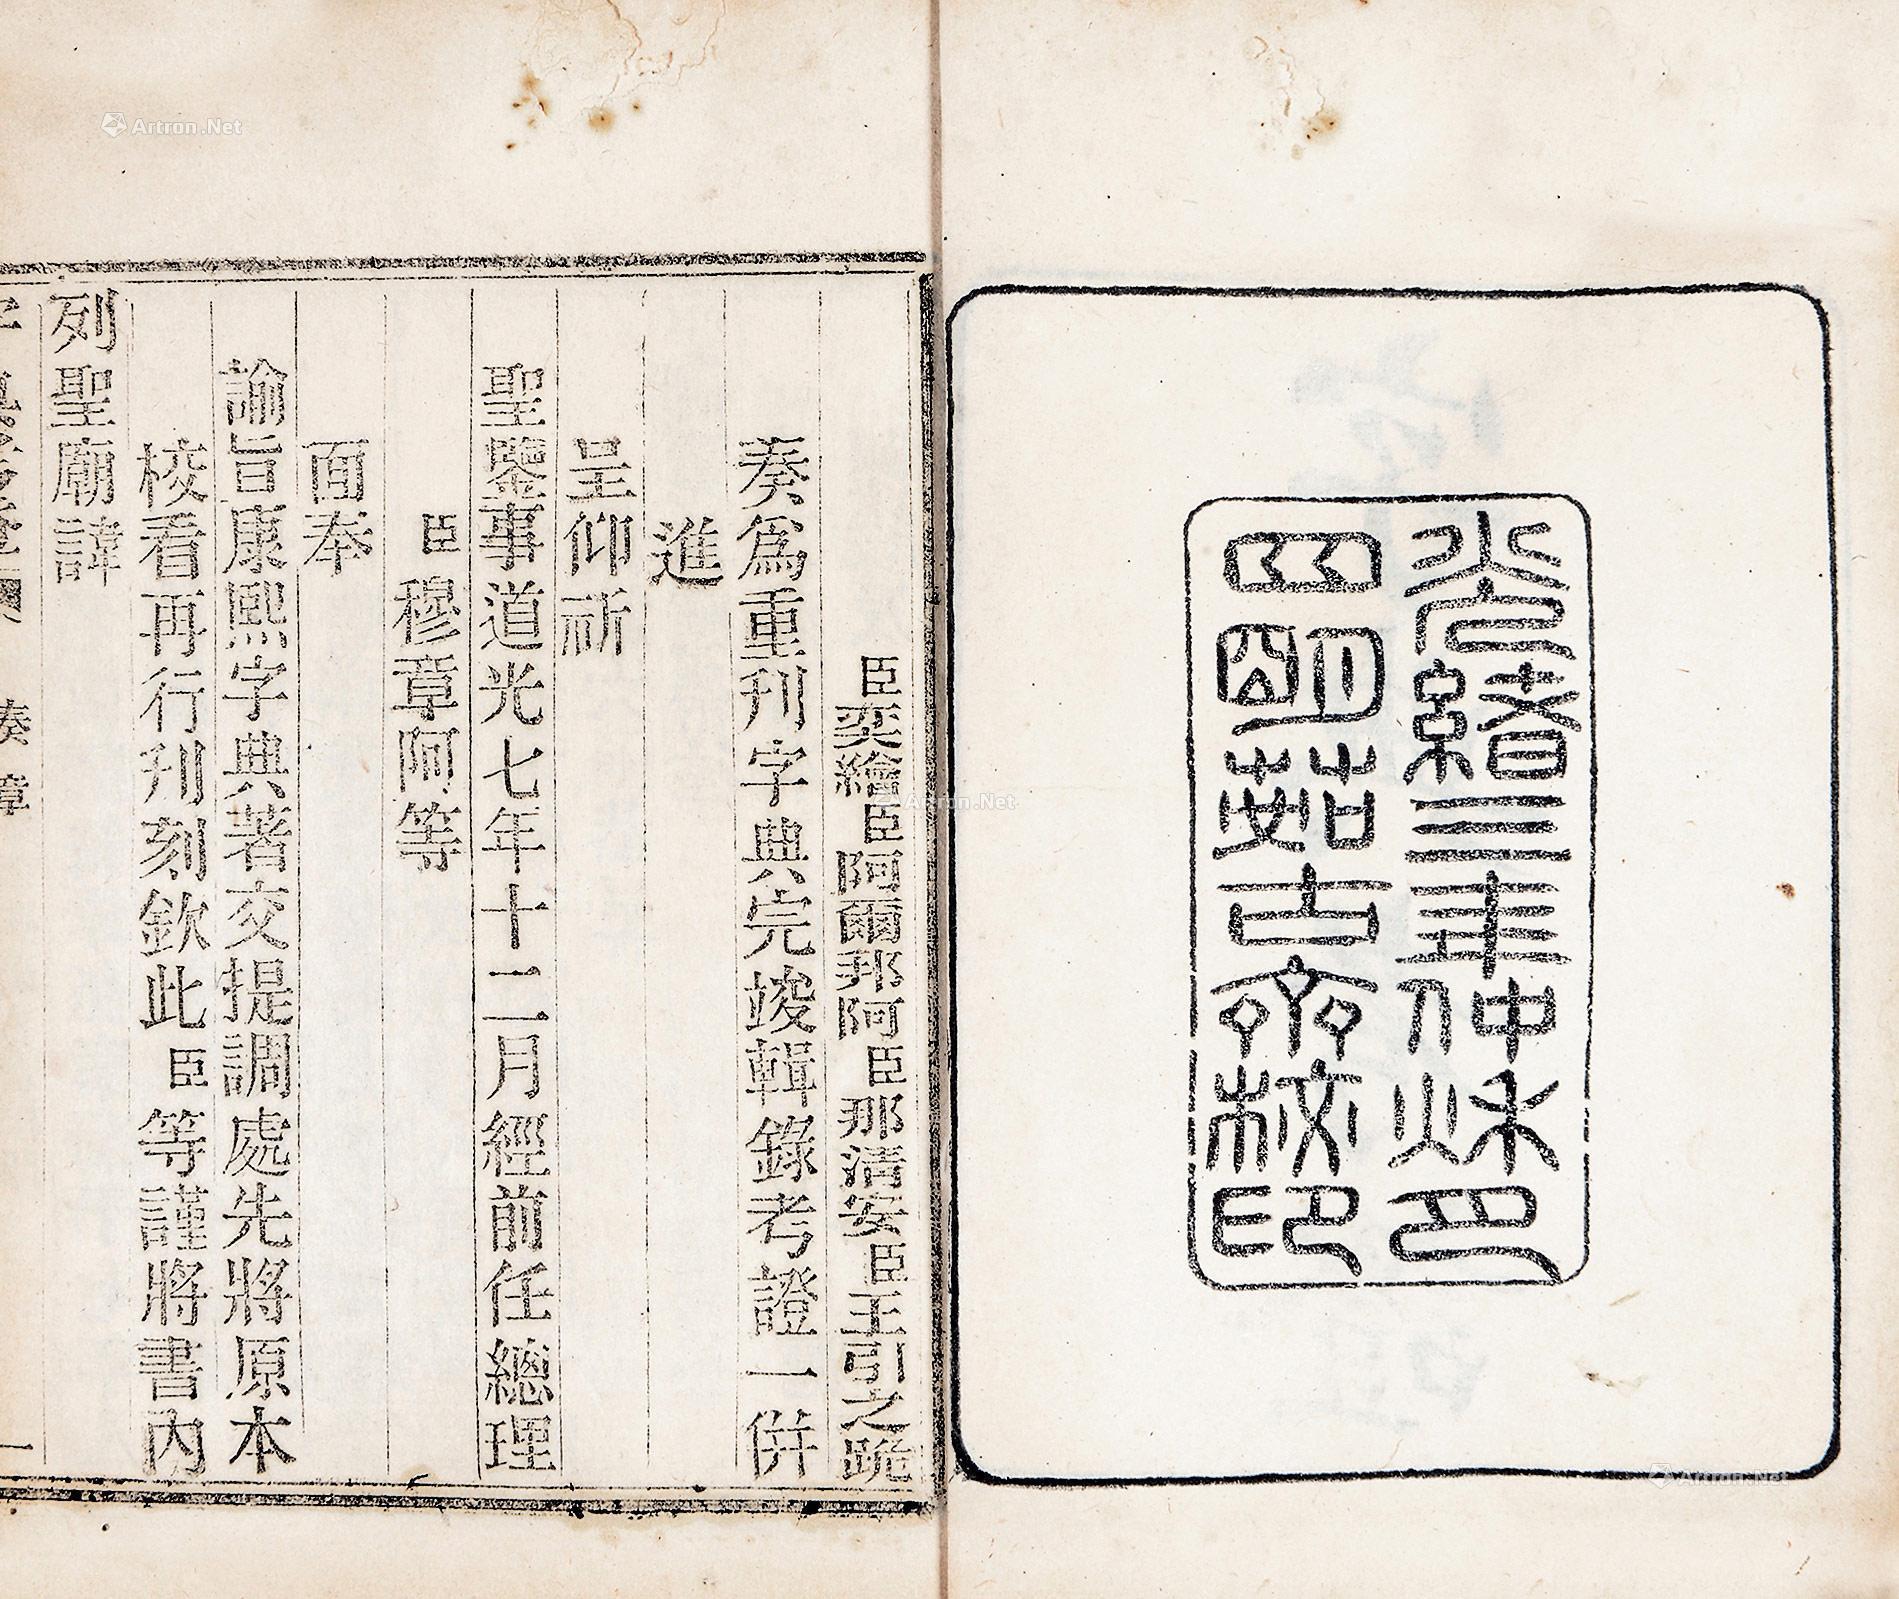 光緒三年仲秋月
四明茹古齋校印
臣奕繪臣阿爾邦阿臣那清安臣王引之跪
奏爲重刊字典完竣輯錄考證一併
進
呈仰祈
聖鑒事道光七年十二月經前任總理
臣穆章阿等
面奉
諭旨康熙字典著交提調處先將原本
校看再行刊刻欽此臣等謹將書內
列聖廟諱
奏章 一
Artron.Net
Artron.Net
Artron.Net